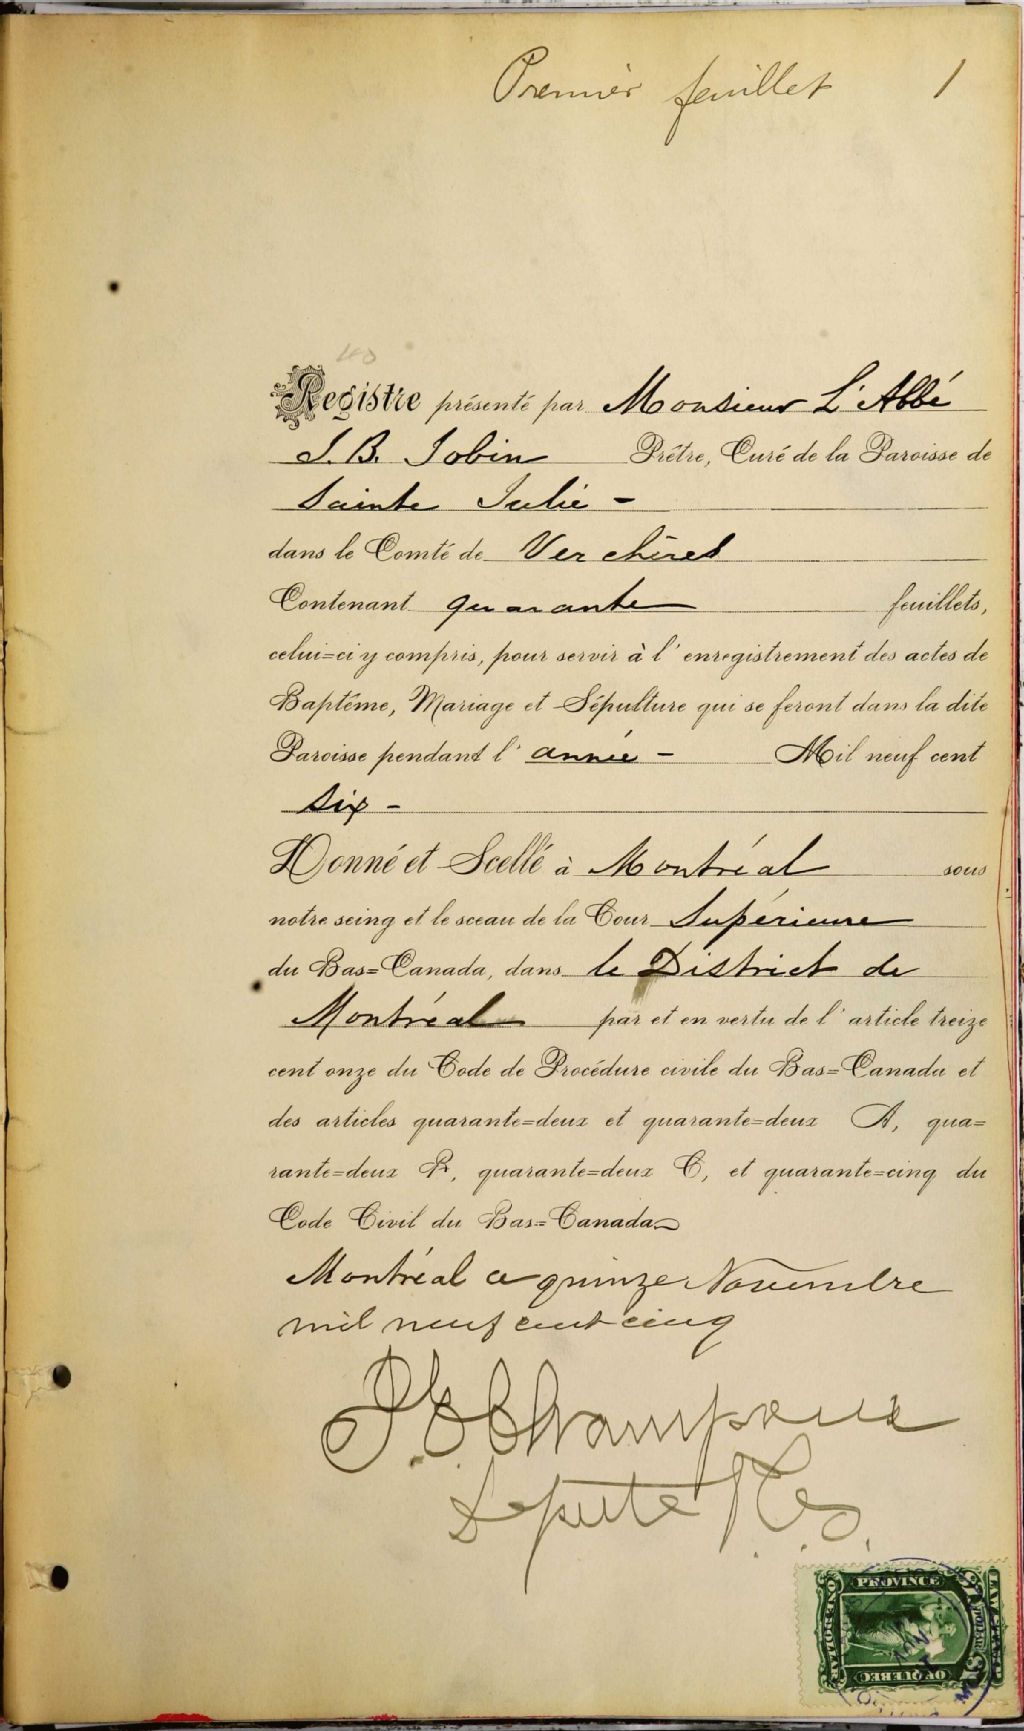 Premier feuillet 1
40
Registre présenté par Monsieur L'Abbé
J. B. Jobin Prêtre, Curé de la Paroisse de
Sainte Julie -
dans le Comté de Verchères
Contenant quarante feuillets,
celui=ci y compris, pour servir à l'enregistrement des actes de
Baptême, Mariage et Sépulture qui se feront dans la dite
Paroisse pendant l'année - Mil neuf cent
six -
Donné et Scellé à Montréal sous
notre seing et le sceau de la Cour Supérieure
du Bas=Canada, dans le District de
Montréal par et en vertu de l'article treize
cent onze du Code de Procédure civile du Bas=Canada et
des articles quarante=deux et quarante=deux A, qua=
rante=deux B, quarante=deux C, et quarante=cinq du
Code Civil du Bas=Canada
Montréal ce quinze Novembre
mil neuf cent cinq
Député P.C.S.
PROVINCE
ONE DOLLAR
OF QUEBEC